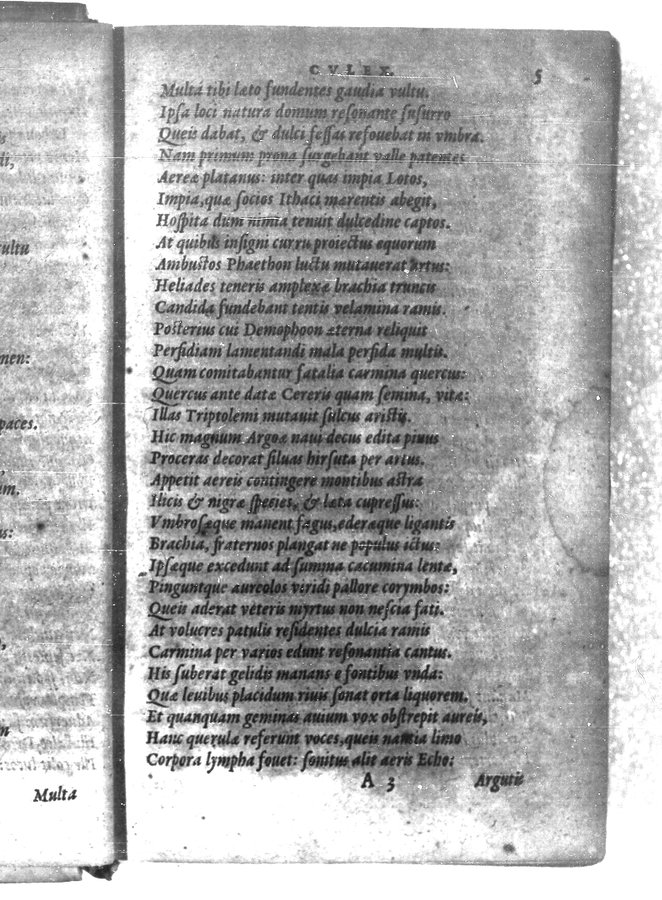 ultu
men:
paces.
Multa
CVLEX. 5
Multa tibi læto fundentes gaudia vultu.
Ipsa loci natura domum resonante susurro
Queis dabat, & dulci fessas refouebat in vmbra.
Nam primum prona surgebant valle patentes
Aereæ platanus: inter quas impia Lotos,
Impia, quæ socios Ithaci mærentis abegit,
Hospita dum nimia tenuit dulcedine captos.
At quibus insigni curru proiectus equorum
Ambustos Phaethon luctu mutauerat artus:
Heliades teneris amplexæ brachia truncis
Candida fundebant tentis velamina ramis.
Posterius cui Demophoon æterna reliquit
Perfidiam lamentandi mala perfida multis.
Quam comitabantur fatalia carmina quercus:
Quercus ante datæ Cereris quam semina, vitæ:
Illas Triptolemi mutauit sulcus aristis.
Hic magnum Argoæ naui decus edita pinus
Proceras decorat siluas hirsuta per artus.
Appetit aereis contingere montibus astra
Ilicis & nigræ species, & læta cupressus:
Vmbrosæque manent fagus, ederæque ligantis
Brachia, fraternos plangat ne populus ictus:
Ipsæque excedunt ad summa cacumina lentæ,
Pinguntque aureolos viridi pallore corymbos:
Queis aderat veteris myrtus non nescia fati.
At volucres patulis residentes dulcia ramis
Carmina per varios edunt resonantia cantus.
His suberat gelidis manans e fontibus vnda:
Quæ leuibus placidum riuis sonat orta liquorem.
Et quanquam geminas auium vox obstrepit aureis,
Hanc querulæ referunt voces, queis nantia limo
Corpora lympha fouet: sonitus alit aeris Echo:
A 3 Argutis